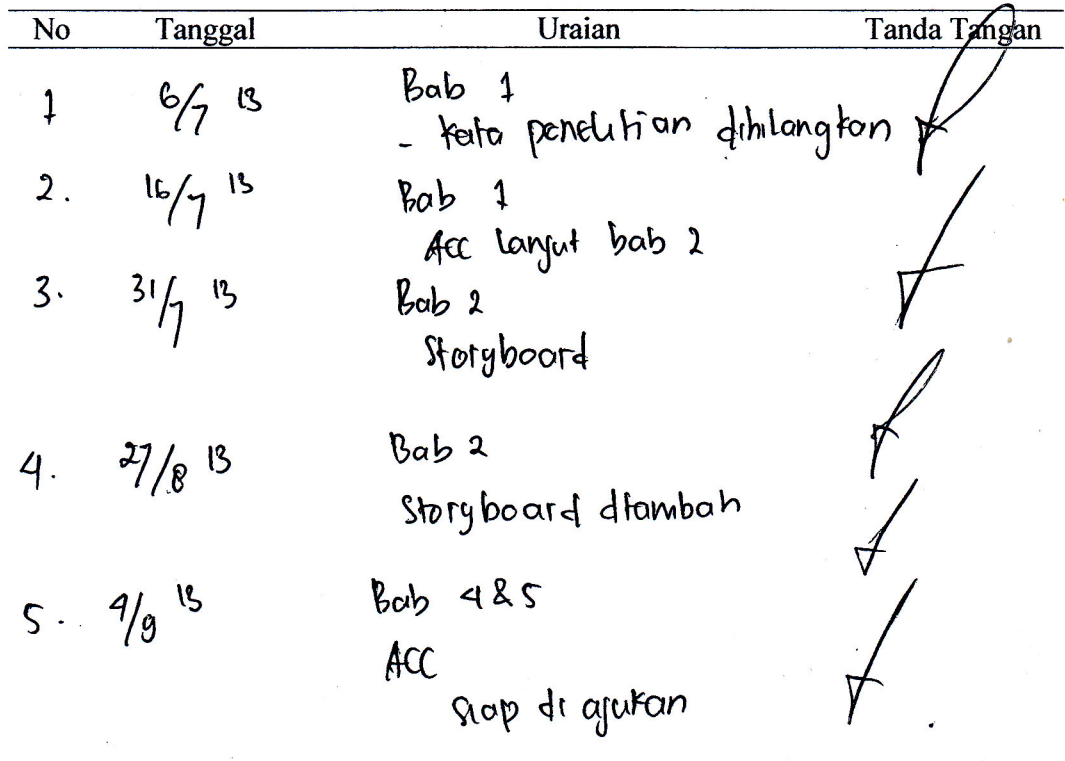 No Tanggal Uraian Tanda Tangan
1 6/7 13 Bab 1
- kata penelitian dihilangkan
2. 16/7 13 Bab 1
Acc lanjut bab 2
3. 31/7 13 Bab 2
Storyboard
4. 27/8 13 Bab 2
Storyboard dtambah
5. 4/9 13 Bab 4 & 5
ACC
siap di ajukan